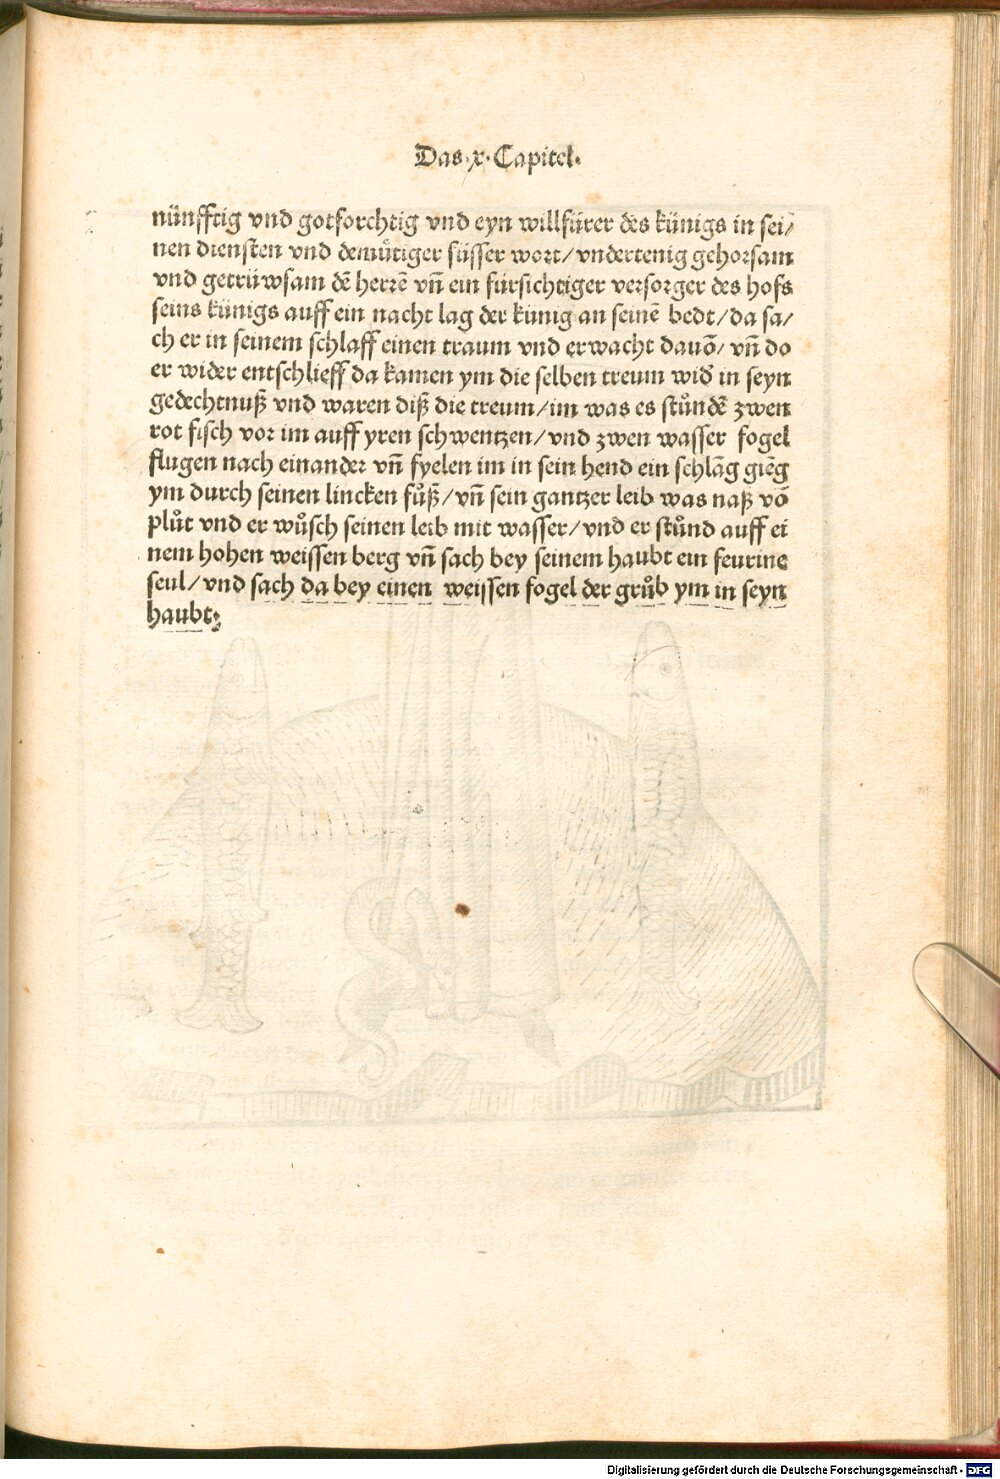 Das·x·Capitel·
nünfftig vnd gotforchtig vnd eyn willfürer des künigs in sei/
nen diensten vnd demuͤtiger süsser wort/vndertenig gehorsam
vnd getrüwsam dē herrē vn̄ ein fürsichtiger versorger des hofs
seins künigs auff ein nacht lag der künig an seinē bedt/da sa/
ch er in seinem schlaff einen traum vnd erwacht dauō/vn̄ do
er wider entschlieff da kamen ym die selben treum wid̕ in seyn
gedechtnuß vnd waren diß die treum/im was es stůndē zwen
rot fisch vor im auff yren schwentzen/vnd zwen wasser fogel
flugen nach einander vn̄ fyelen im in sein hend ein schlāg giēg
ym durch seinen lincken fůß/vn̄ sein gantzer leib was naß vō
plůt vnd er wůsch seinen leib mit wasser/vnd er stůnd auff ei
nem hohen weissen berg vn̄ sach bey seinem haubt ein feurine
seul/vnd sach da bey einen weissen fogel der grůb ym in seyn
haubt;
Digitalisierung gefördert durch die Deutsche Forschungsgemeinschaft - DFG